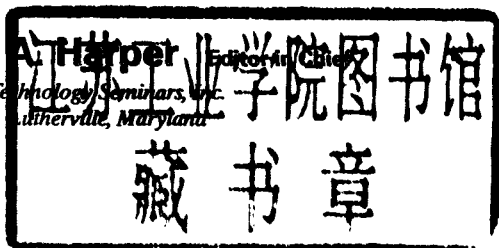 A. Harper Editor in Chief
Technology Seminars, Inc.
Lutherville, Maryland
江苏工业学院图书馆
藏书章